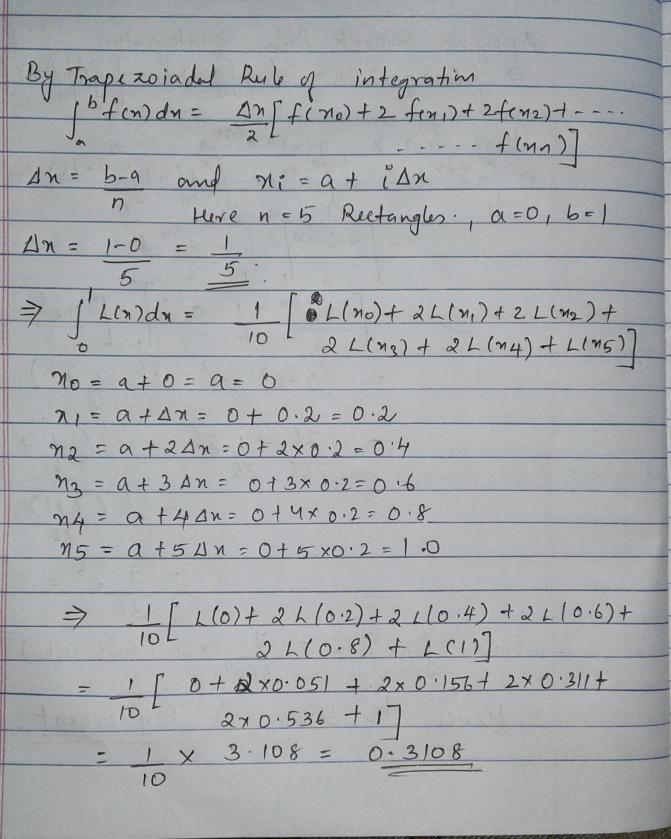 By Trapezoiadal Rule of integration
∫ₐᵇ f(x)dx = Δx/2 [ f(x₀) + 2 f(x₁) + 2f(x₂) + - - - -
- - - - - f(xₙ)]
Δx = b-a/n and xᵢ = a + iΔx
Here n = 5 Rectangles., a=0, b=1
Δx = 1-0/5 = 1/5.
⇒ ∫₀¹ L(x)dx = 1/10 [ L(x₀) + 2L(x₁) + 2 L(x₂) +
2 L(x₃) + 2L(x₄) + L(x₅)]
x₀ = a + 0 = a = 0
x₁ = a + Δx = 0 + 0.2 = 0.2
x₂ = a + 2Δx = 0 + 2×0.2 = 0.4
x₃ = a + 3Δx = 0 + 3×0.2 = 0.6
x₄ = a + 4Δx = 0 + 4×0.2 = 0.8
x₅ = a + 5Δx = 0 + 5×0.2 = 1.0
⇒ 1/10 [ L(0) + 2L(0.2) + 2L(0.4) + 2L(0.6) +
2L(0.8) + L(1)]
= 1/10 [ 0 + 2×0.051 + 2×0.156 + 2×0.311 +
2×0.536 + 1]
= 1/10 × 3.108 = 0.3108